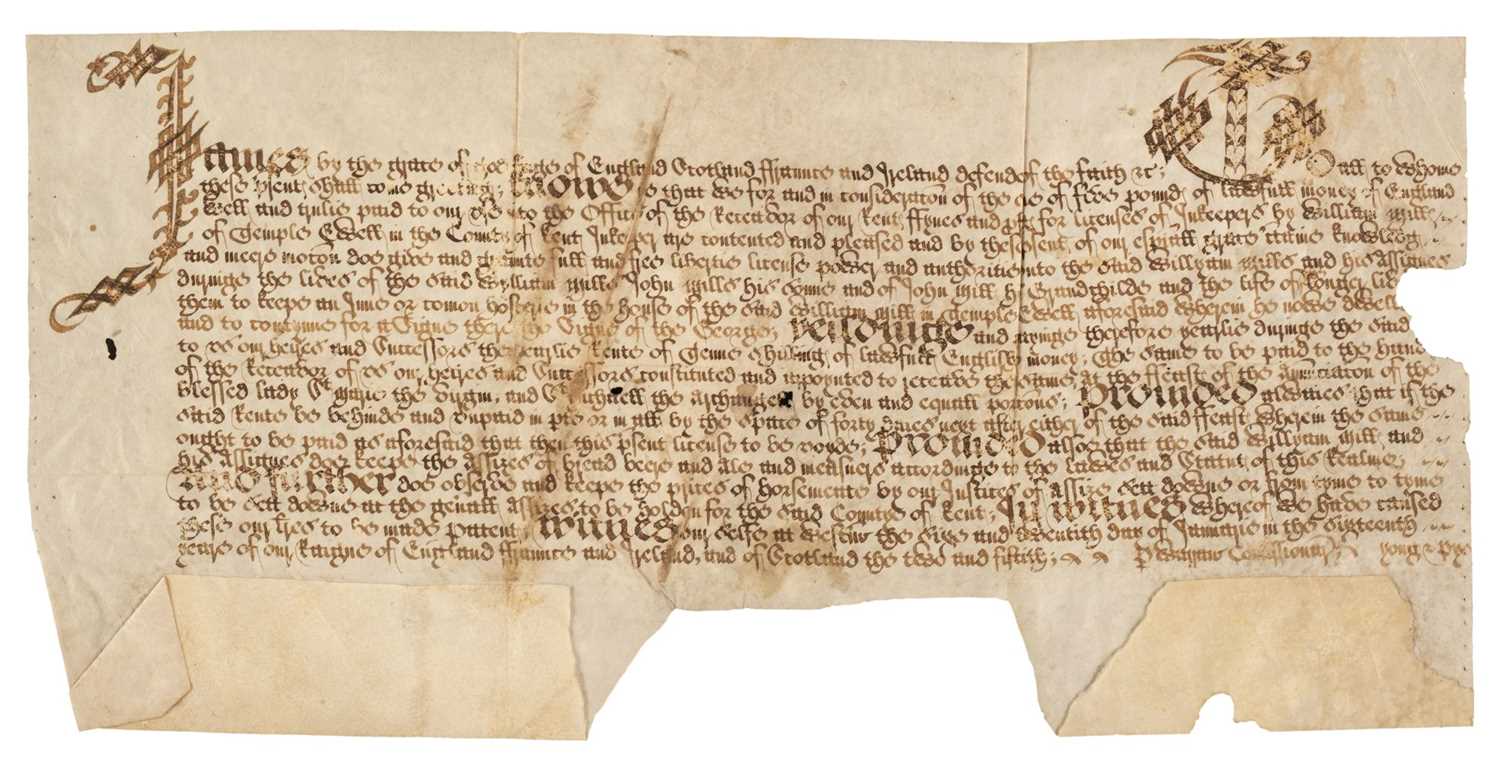 James by the grace of God kinge of England Scotland ffraunce and Ireland defender of the faith &c: To all to whome
these psents shall come greeting; knowe ye that we for and in consideracon of the of five pounds of lawfull money of England
well and trulie paid to our use into the Office of the Receavor of our Rents ffynes and for licenses of Inkeepers by William Mills
of Temple Ewell in the County of Kent Inkeper are contented and pleased and by these psents of our espiall grace certaine knowledg
and meere mocon doe give and graunte full and free libertie license power and authoritie unto the said Willyam Mills and his assignes
duringe the lives of the said Wylliam Mills John Mills his sonne and of John Mills his Grandchilde and the life of longer liver
them to keepe an Inne or comon hosterie in the house of the said William Mills in Temple Ewell aforesaid wherein he nowe dwell
and to contynue for a Signe there the Signe of the George; Yeildinge and payinge therefore yearlie duringe the said
to us our heires and Successors the yearlie Rente of Tenne shillings of lawfull English money; The same to be paid to the hands
of the Receavor of us our heires and Successors constituted and appoynted to receave the same, at the ffeast of the Annuciacon of the
blessed lady St marie the virgin, and St Michaell the Archangell by even and equall porcons; Provided alwaies that if the
said Rente be behinde and unpaid in pte or in all by the space of forty daies next after either of the said ffeasts wherein the same
ought to be paid as aforesaid that then this psent license to be voyde; Provided alsoe that the said Willyam Mills and
his assignes doe keepe the assizes of bread beere and ale and measures accordinge to the lawes and Statuts of this Realme;
And further doe observe and keepe the prices of horsemeate by our Justices of assize sett downe or from tyme to tyme
to be sett downe at the gen̄all assizes to be holden for the said Countye of Kent; In witnes whereof we have caused
these our lres to be made patents; Witnes our selfe at Westm̄ the sixe and twentith day of Januarie in the sixteenth
yeare of our Raigne of England ffraunce and Ireland, and of Scotland the two and fiftith; Yong & Pye